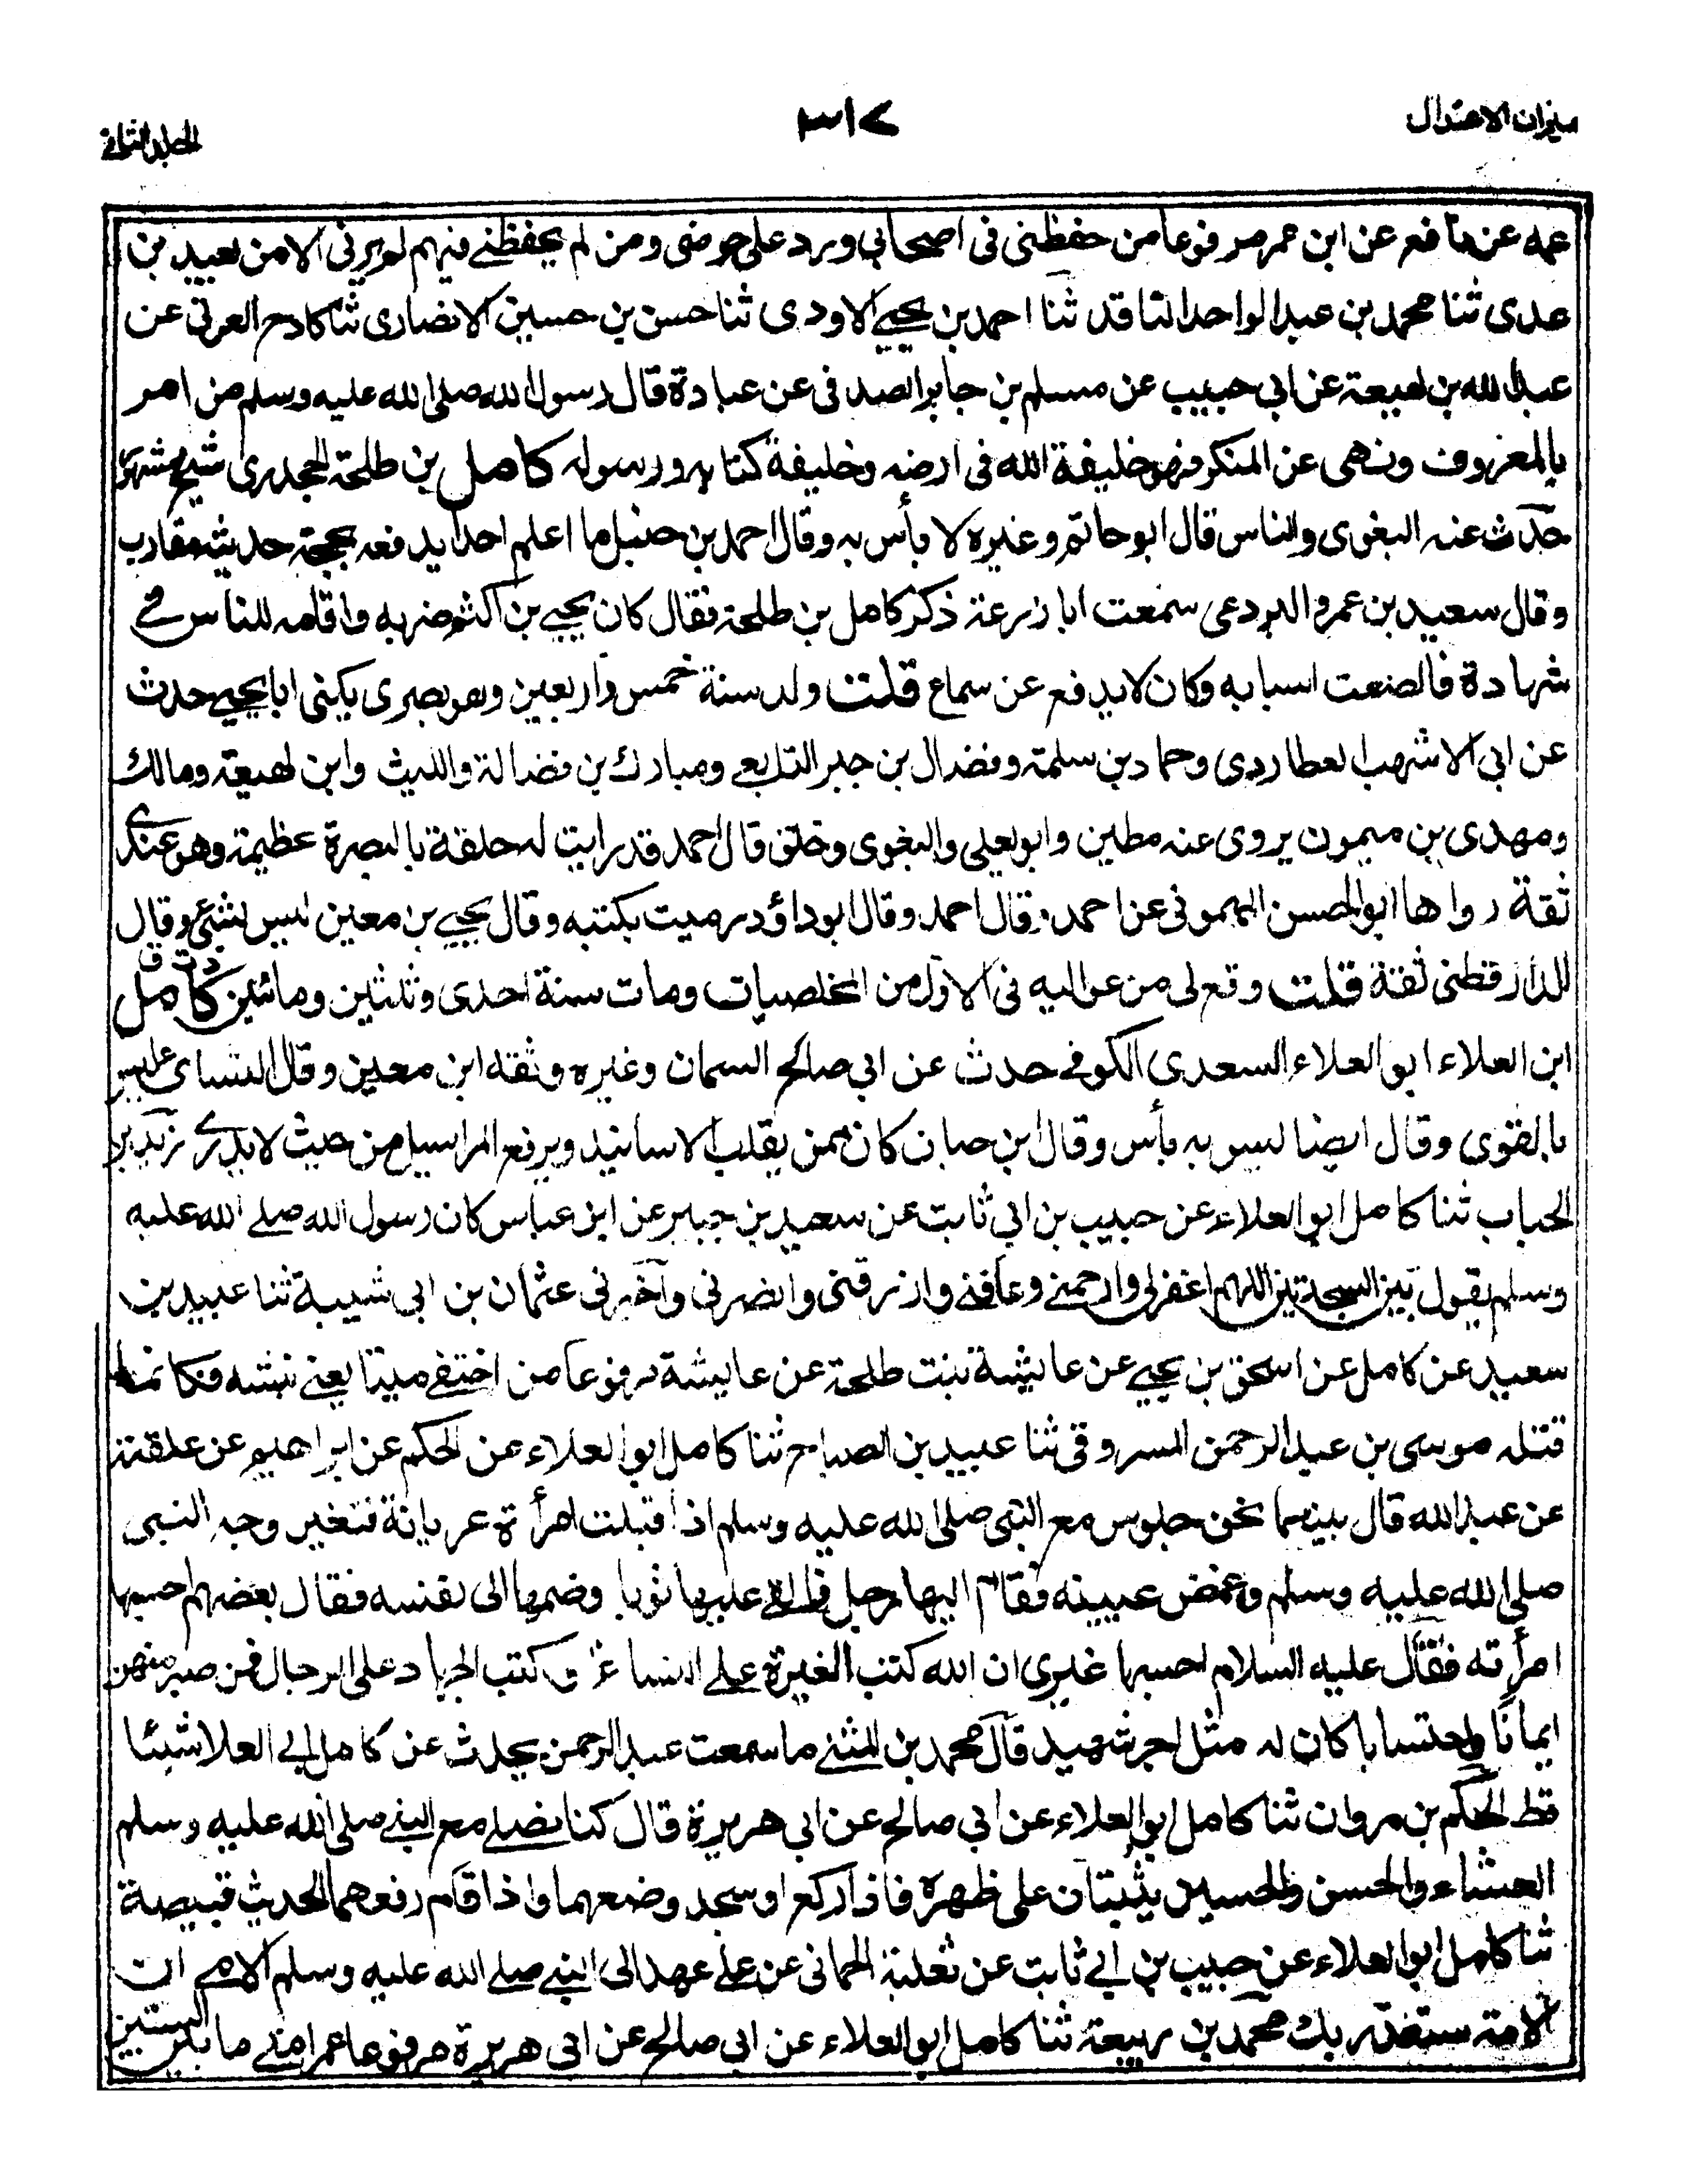 ميزان الاعتدال
٣١٧
المجلد الثاني
عمه عن نافع عن ابن عمر مرفوعا من حفظني في اصحابي ورد على حوضي ومن لم يحفظني فيهم لم يرني الا من بعيد بن
عدى ثنا محمد بن عبد الواحد الناقد ثنا احمد بن يحيى الاودى ثنا حسن بن حسين الانصارى ثنا كادح العرني عن
عبد الله بن لهيعة عن ابي حبيب عن مسلم بن جابر الصدفى عن عبادة قال رسول الله صلى الله عليه وسلم من امر
بالمعروف ونهى عن المنكر فهو خليفة الله فى ارضه وخليفة كتابه ورسوله كامل بن طلحة الجحدرى شيخ مشهور
حدث عنه البغوى والناس قال ابو حاتم وغيره لا بأس به وقال احمد بن حنبل ما اعلم احدا يدفعه بحجة حديثه مقارب
وقال سعيد بن عمرو البردعى سمعت ابا زرعة ذكر كامل بن طلحة فقال كان يحيى بن اكثم ضربه واقامه للناس فى
شهادة فالصنعت اسبابه وكان لا يدفع عن سماع قلت ولد سنة خمس واربعين وهو بصرى يكنى ابا يحيى حدث
عن ابي الاشهب العطاردى وحماد بن سلمة وفضال بن جبر التابعى ومبارك بن فضالة والليث وابن لهيعة ومالك
ومهدى بن ميمون يروى عنه مطين وابو يعلى والبغوى وخلق قال احمد قد رايت له حلقة بالبصرة عظيمة وهو عندى
ثقة رواها ابو الحسن الميمونى عن احمد. قال احمد وقال ابو داؤد رميت بكتبه وقال يحيى بن معين ليس بشئ وقال
الدارقطنى ثقة قلت وقع لى من عواليه فى الاول من المخلصيات ومات سنة احدى وثلثين ومائتين كامل د ت ق
ابن العلاء ابو العلاء السعدى الكوفى حدث عن ابى صالح السمان وغيره وثقه ابن معين وقال النساى ليس
بالقوى وقال ايضا ليس به بأس وقال ابن حبان كان ممن يقلب الاسانيد ويرفع المراسيل من حيث لا يدرى زيد بن
الحباب ثنا كامل ابو العلاء عن حبيب بن ابي ثابت عن سعيد بن جبير عن ابن عباس كان رسول الله صلى الله عليه
وسلم يقول بين السجدتين اللهم اغفرلى وارحمنى وعافنى وارزقنى وانصرنى وآخرنى عثمان بن ابى شيبة ثنا عبيد بن
سعيد عن كامل عن اسحق بن يحيى عن عايشة بنت طلحة عن عايشة مرفوعا من اختفى ميتا يعنى نبشه فكانما
قتله موسى بن عبد الرحمن المسروقى ثنا عبيد بن الصباح ثنا كامل ابو العلاء عن الحكم عن ابراهيم عن علقمة
عن عبد الله قال بينما نحن جلوس مع النبى صلى الله عليه وسلم اذ اقبلت امرأة عريانة فتغير وجه النبى
صلى الله عليه وسلم وغمض عينيه فقام اليها رجل فالقى عليها ثوبا وضمها الى نفسه فقال بعضهم احسبها
امرأته فقال عليه السلام احسبها غيرى ان الله كتب الغيرة على النساء وكتب الجهاد على الرجال فمن صبر منهن
ايمانا واحتسابا كان له مثل اجر شهيد قال محمد بن المثنى ما سمعت عبد الرحمن يحدث عن كامل ابى العلا شيئا
قط الحكم بن مروان ثنا كامل ابو العلاء عن ابي صالح عن ابى هريرة قال كنا نصلى مع النبى صلى الله عليه وسلم
العشاء والحسن والحسين يثبتان على ظهره فاذا ركع او سجد وضعهما واذا قام رفعهما الحديث قبيصة
ثنا كامل ابو العلاء عن حبيب بن ابى ثابت عن ثعلبة الحمانى عن على عهد الى النبى صلى الله عليه وسلم الامى ان
الامة ستغدر بك محمد بن ربيعة ثنا كامل ابو العلاء عن ابى صالح عن ابى هريرة مرفوعا عمر امتى ما بين الستين